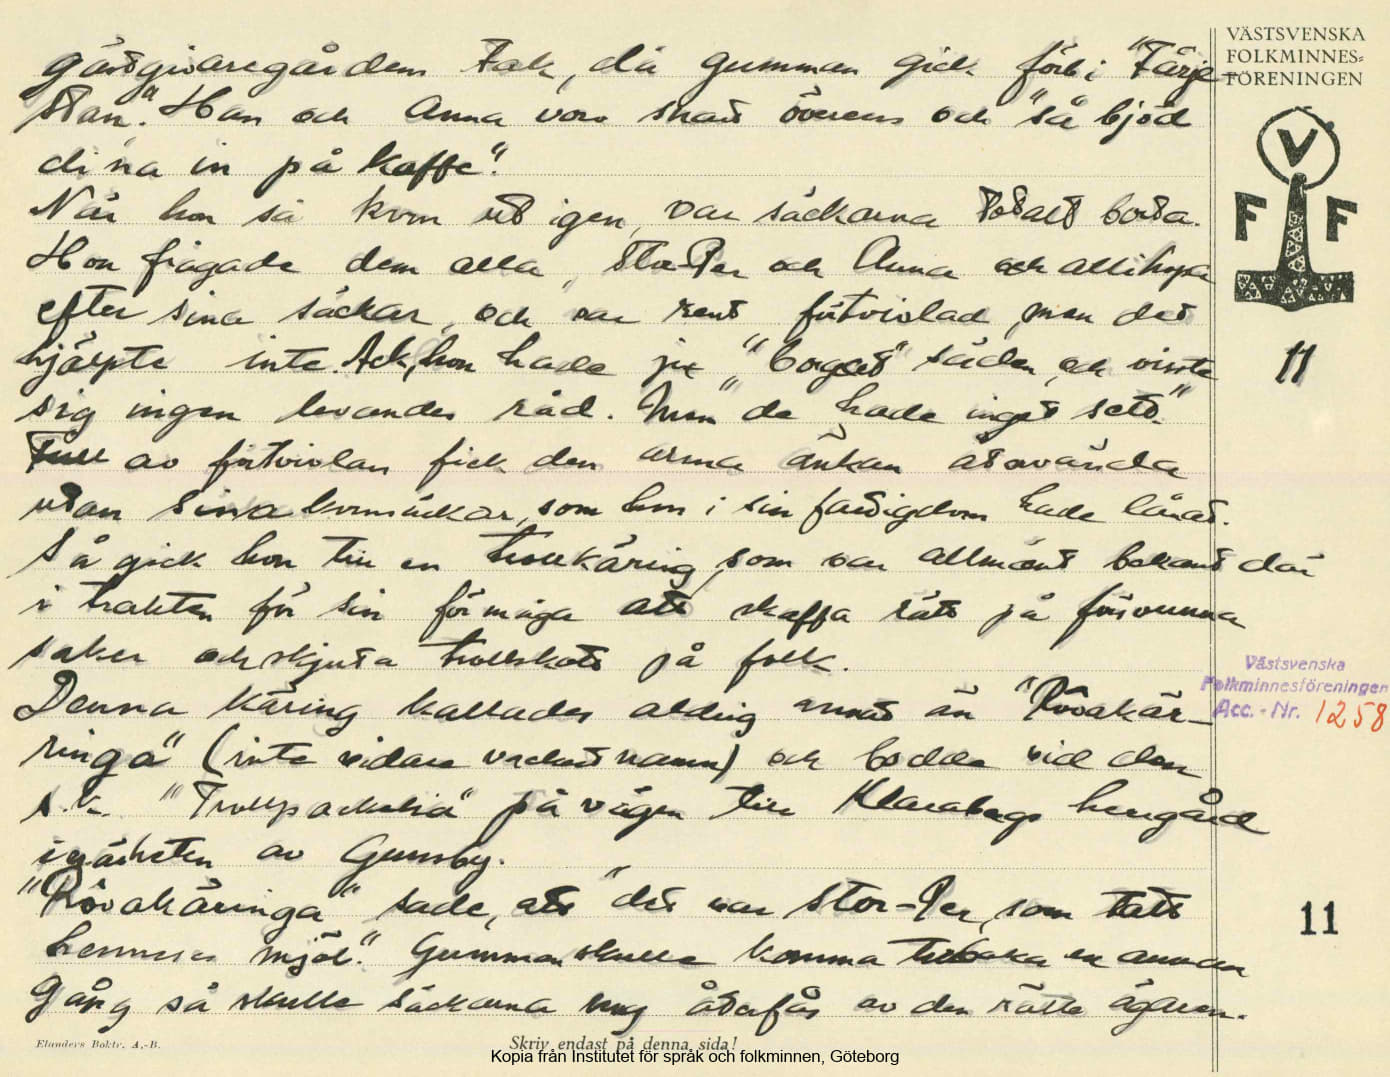 VÄSTSVENSKA
FOLKMINNES-
FÖRENINGEN
V
F F
gästgivaregårdens tak, då gumman gick förbi "Färje-
stan". Han och Anna voro snart överens och "så bjöd
di na in på kaffe".
När hon så kom ut igen, var säckarna totalt borta.
Hon frågade dem alla, Stor-Per och Anna och allihopa
efter sina säckar, och var rent förtvivlad, men det
hjälpte inte. Ack, hon hade ju "borgat" säden, och visste
sig ingen levandes råd. Men "de hade inget sett."
Full av förtvivlan fick den arma änkan återvända
utan sina kornsäckar, som hon i sin fattigdom hade lånat.
Så gick hon till en trollkäring, som var allmänt bekant där
i trakten för sin förmåga att skaffa rätt på försvunna
saker och skjuta trollskott på folk.
Denna käring kallades aldrig annat än "Rövakär-
ringa" (inte vidare vackert namn) och bodde vid den
s.k. "Trollpackelia" på vägen till Klarabergs herrgård
i närheten av Gunsby.
"Rövakäringa" sade, att "det var Stor-Per, som tatt
hennes mjöl". Gumman skulle komma tillbaka en annan
gång så skulle säckarna nog återfås av den rätte ägaren.
11
Västsvenska
Folkminnesföreningen
Acc. - Nr. 1258
11
Elanders Boktr. A.-B.
Skriv endast på denna sida!
Kopia från Institutet för språk och folkminnen, Göteborg